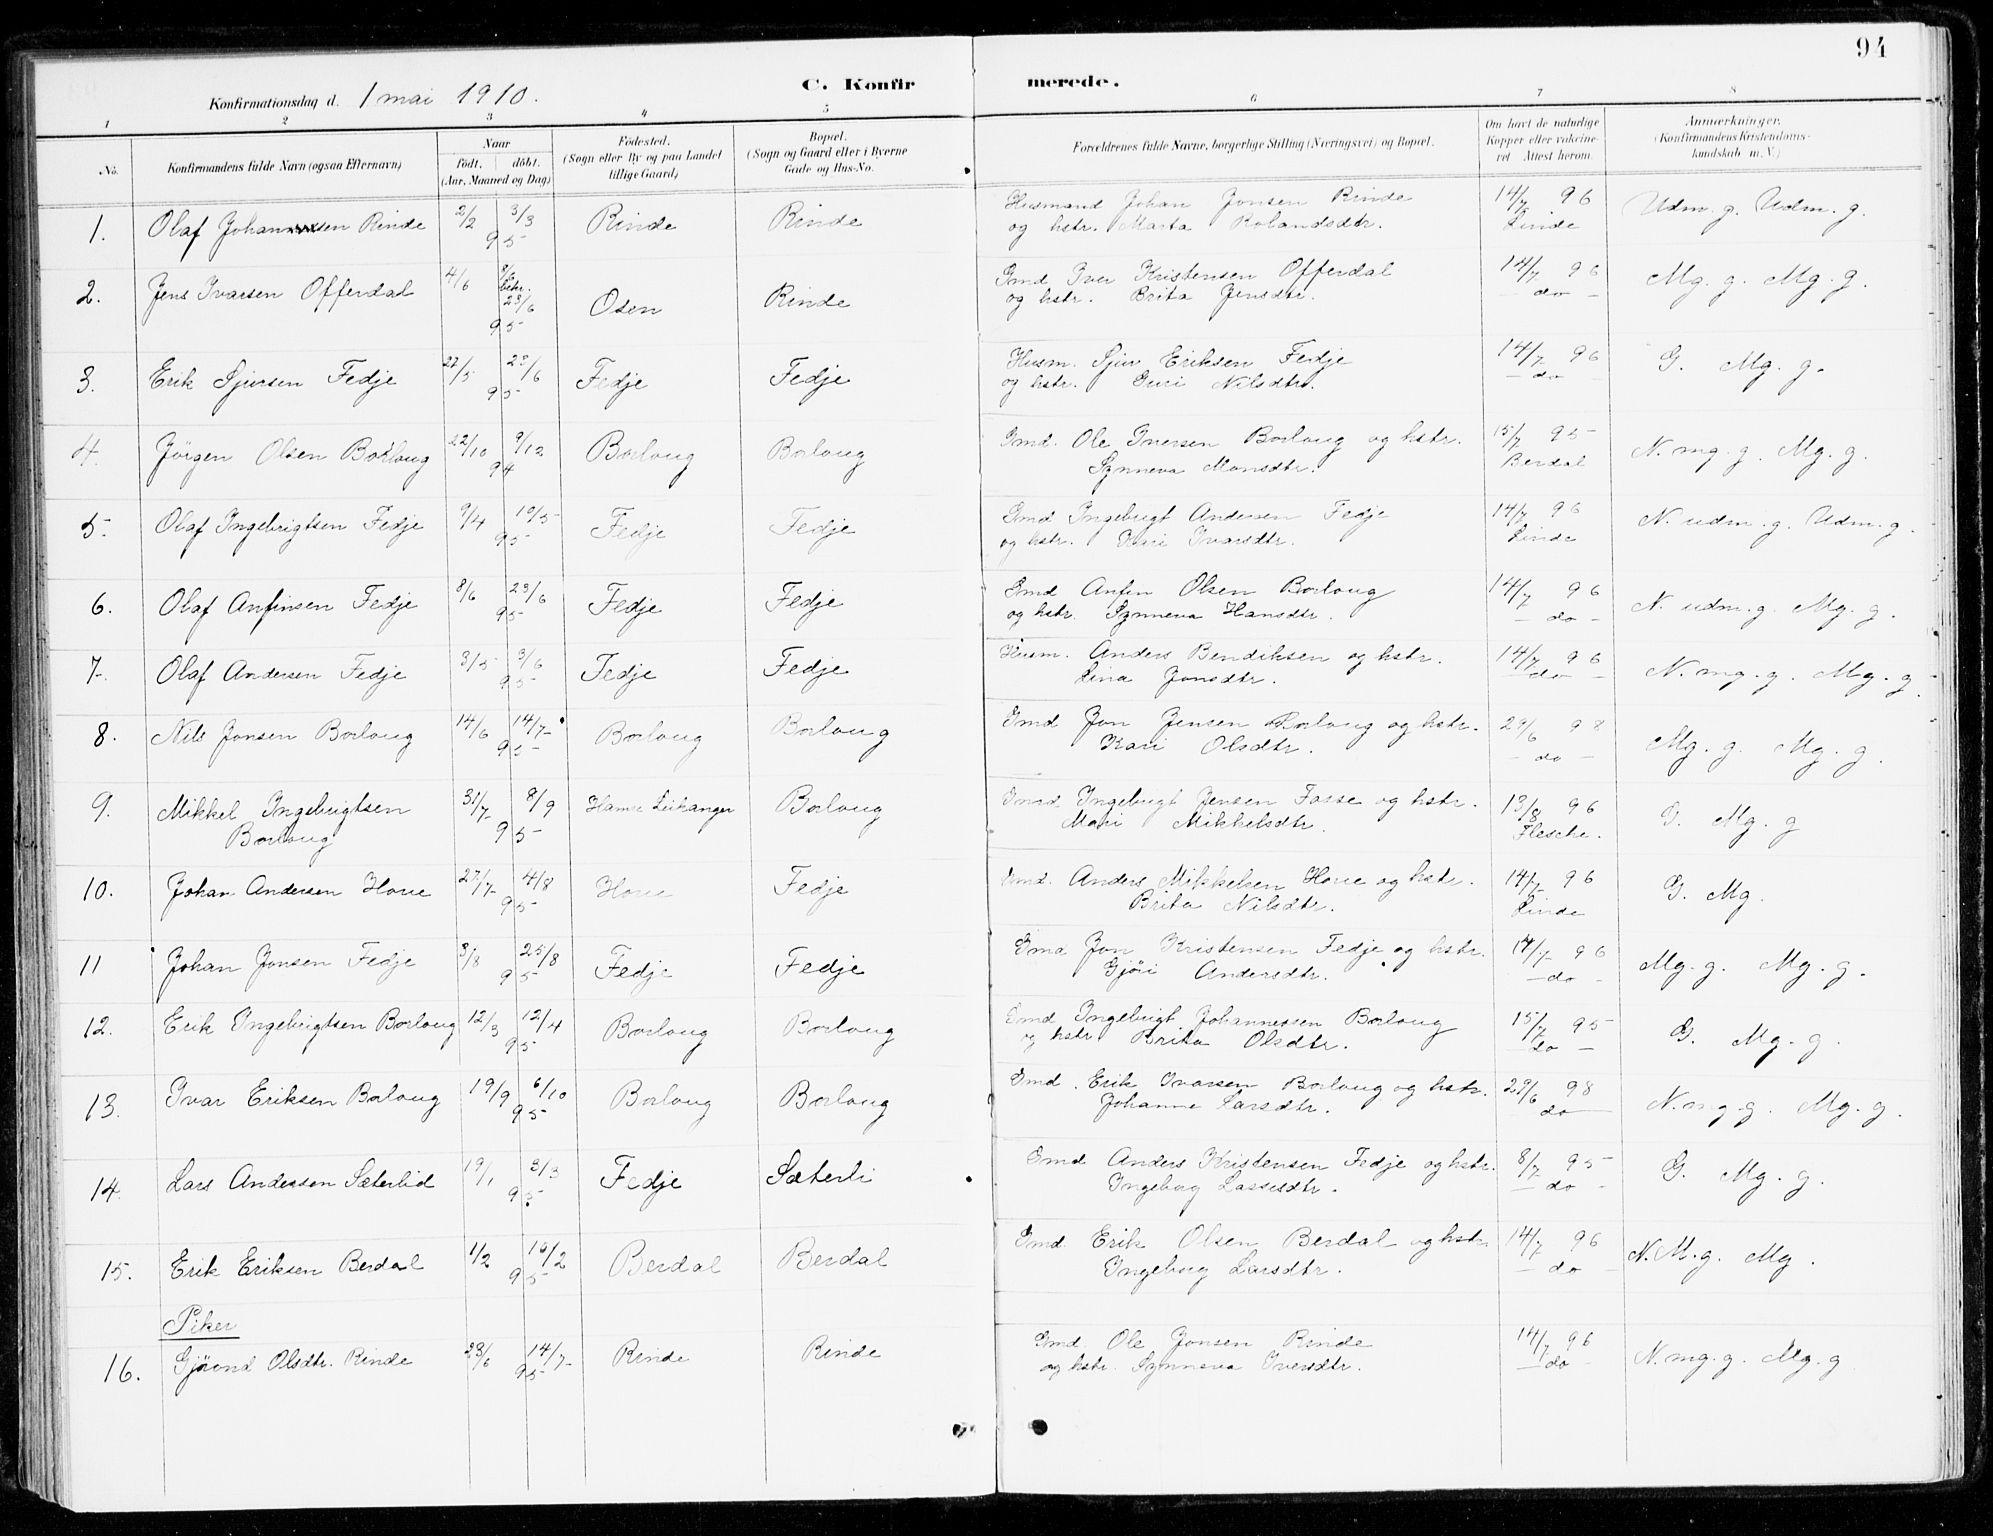 94
C. Konfirmerede.
Konfirmationsdag d. 1 mai 1910.
1 2 3 4 5 6 7 8
No. | Konfirmandens fulde Navn (ogsaa Efternavn) | Naar födt. döbt. (Aar, Maaned og Dag) | Födested. (Sogn eller By og paa Landet tillige Gaard) | Bopæl. (Sogn og Gaard eller i Byerne Gade og Hus-No. | Forældrenes fulde Navne, borgerlige Stilling (Næringsvei) og Bopæl. | Om havt de naturlige Kopper eller vakcineret Attest herom. | Anmærkninger. (Konfirmandens Kristendomskundskab m. V.)
1. Olaf Johansen Rinde 2/2 3/3 95 Rinde Rinde Husmand Johan Jonsen Rinde 14/7 96 Udm. g. Udm. g.
og hstr. Marta Rolandsdtr. Linde
2. Jens Ivarsen Offerdal 4/6 23/6 95 Osen Rinde Gmd Iver Kristensen Offerdal 14/7 96 Mg. g. Mg. g.
og hstr. Brita Jensdtr. — do —
3. Erik Sjursen Fedje 27/5 23/6 95 Fedje Fedje Husm. Sjur Eriksen Fedje 14/7 96 G. Mg. g.
og hstr. Guri Nilsdtr. — do —
4. Jörgen Olsen Borlaug 22/10 9/12 94 Borlaug Borlaug Gmd. Ole Iversen Borlaug og hstr. 15/7 95 N. mg. g. Mg. g.
Synneva Monsdtr. Berdal
5. Olaf Ingebrigtsen Fedje 9/4 19/5 95 Fedje Fedje Gmd Ingebrigt Andersen Fedje 14/7 96 N. udm. g. Udm. g.
og hstr. Kari Ivarsdtr. Linde
6. Olaf Anfinsen Fedje 8/6 23/6 95 Fedje Fedje Gmd Anfin Olsen Borlaug 14/7 96 N. udm. g. Mg. g.
og hstr. Synneva Hansdtr. — do —
7. Olaf Andersen Fedje 3/5 3/6 95 Fedje Fedje Husm. Anders Bendiksen og hstr. 14/7 96 N. mg. g. Mg. g.
Lina Jonsdtr. — do —
8. Nils Jonsen Borlaug 14/6 14/7 95 Borlaug Borlaug Gmd Jon Jensen Borlaug og hstr. 29/6 98 Mg. g. Mg. g.
Kari Olsdtr. — do —
9. Mikkel Ingebrigtsen 31/7 8/9 95 Hamre Leikanger Borlaug Gmd Ingebrigt Jensen Fosse og hstr. 13/8 96 G. Mg. g
Borlaug Mari Mikkelsdtr. Flesche.
10. Johan Andersen Hove 27/7 4/8 95 Hove Fedje Gmd. Anders Mikkelsen Hove og hstr. 14/7 96 G. Mg.
Brita Nilsdtr. Linde
11 Johan Jonsen Fedje 3/8 25/8 95 Fedje Fedje Gmd Jon Kristensen Fedje og hstr. 14/7 96 Mg. g. Mg. g.
Gjöri Andersdtr. — do —
12. Erik Ingebrigtsen Borlaug 12/3 12/4 95 Borlaug Borlaug Gmd Ingebrigt Johannessen Borlaug 15/7 95 G. Mg. g.
og hstr Brita Olsdtr. — do —
13. Ivar Eriksen Borlaug 19/9 6/10 95 Borlaug Borlaug Gmd. Erik Ivarsen Borlaug og hstr. 29/6 98 N. mg. g. Mg. g.
Johanne Larsdtr. — do —
14. Lars Andersen Sæterlid 19/1 3/3 95 Fedje Sæterli Gmd Anders Kristensen Fedje og hstr. 8/7 95 G. Mg. g.
Ingeborg Lassesdtr. — do —
15. Erik Eriksen Berdal 1/2 10/2 95 Berdal Berdal Gmd. Erik Olsen Berdal og hstr. 14/7 96 N. M. g. Mg.
Ingeborg Larsdtr. — do —
Piker
16. Gjöend Olsdtr. Rinde 23/6 14/7 95 Rinde Rinde Gmd Ole Jonsen Rinde 14/7 96 N. mg. g. Mg. g.
og hstr. Synneva Iversdtr. — do —